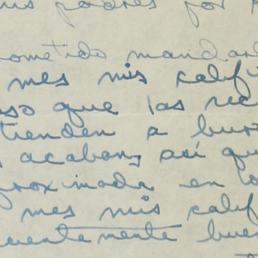 mis padres por
ometido mandar
mes mis califi
so que las rec
tienden a bur
acaban, así qu
roximada en lo
mes mis calif
uentemente bue